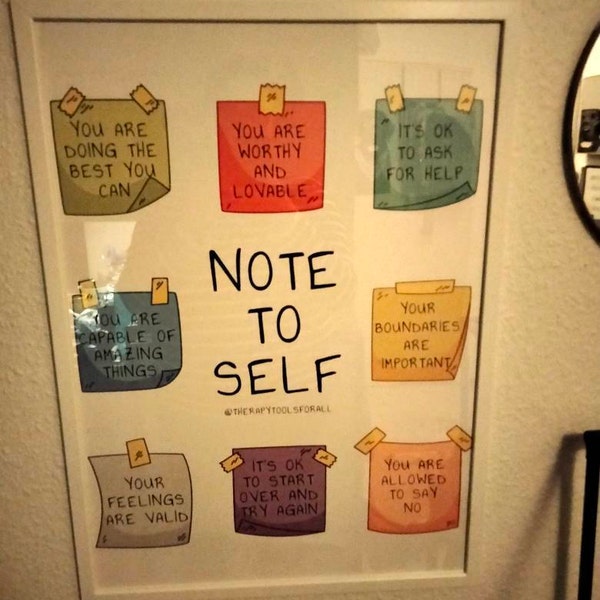 YOU ARE
DOING THE
BEST YOU
CAN
YOU ARE
WORTHY
AND
LOVABLE
IT'S OK
TO ASK
FOR HELP
NOTE
TO
SELF
@THERAPYTOOLSFORALL
YOU ARE
CAPABLE OF
AMAZING
THINGS
YOUR
BOUNDARIES
ARE
IMPORTANT
YOUR
FEELINGS
ARE VALID
IT'S OK
TO START
OVER AND
TRY AGAIN
YOU ARE
ALLOWED
TO SAY
NO